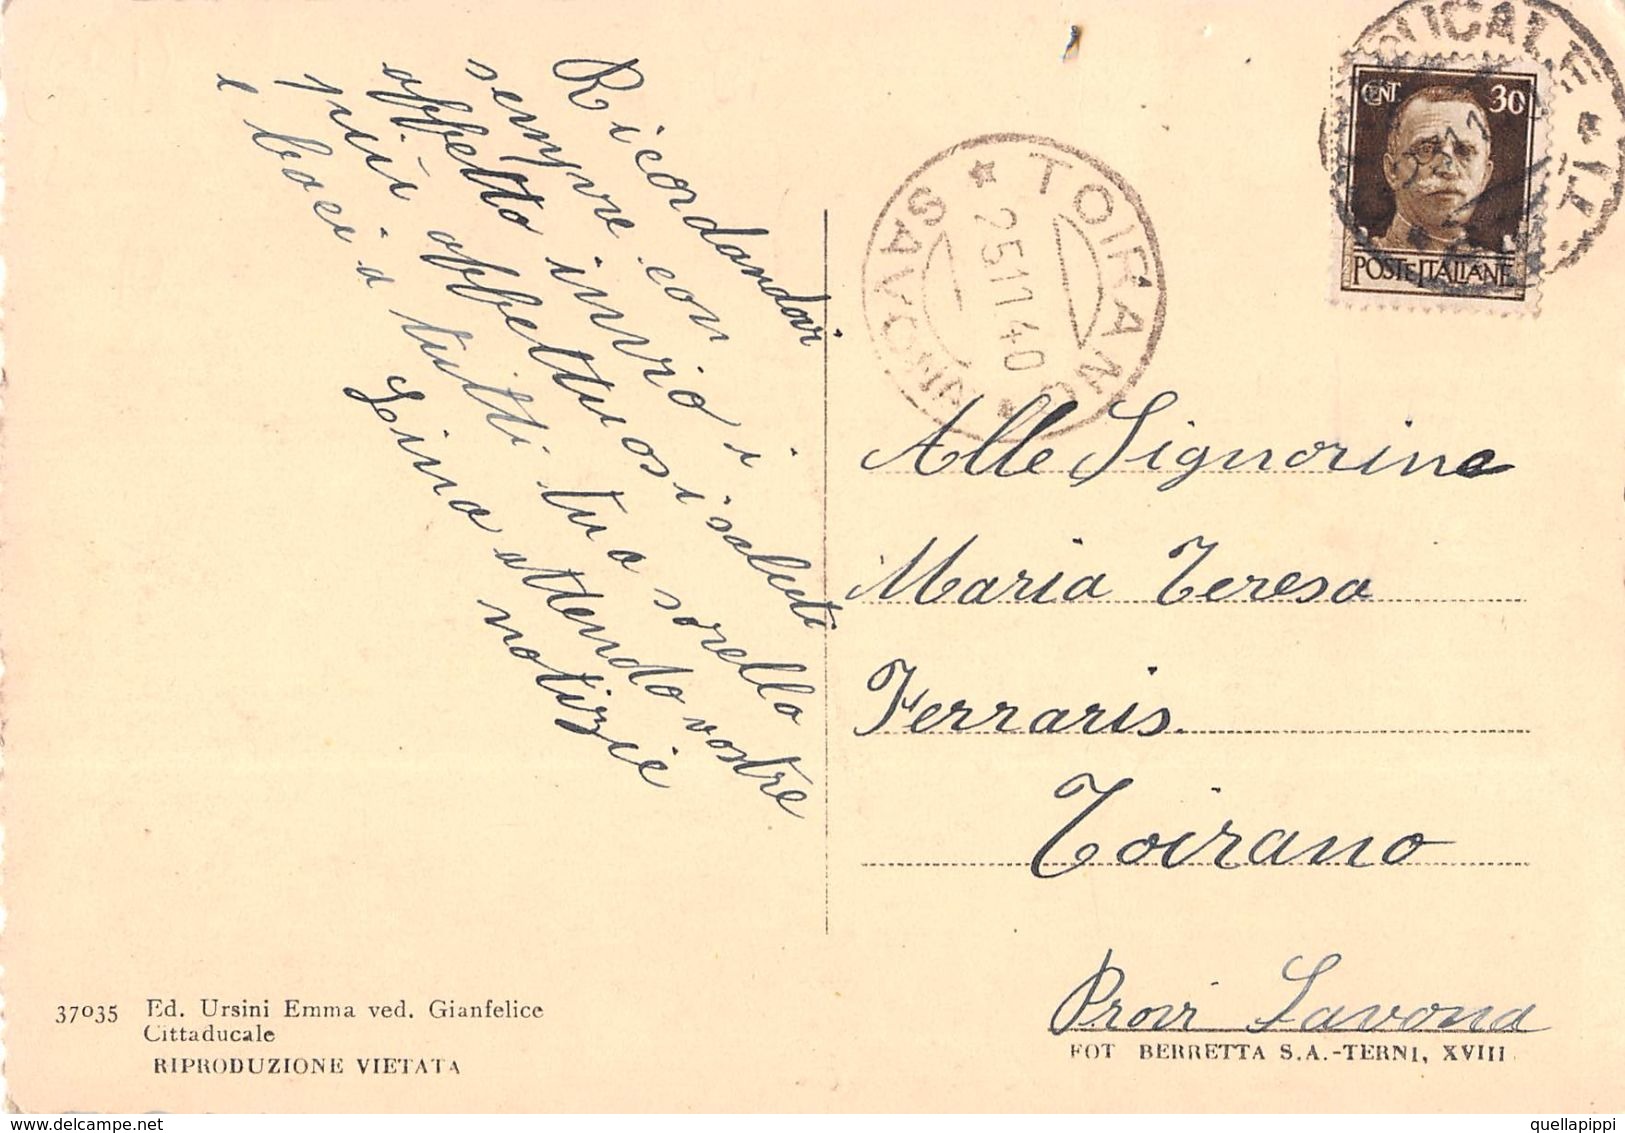 Ricordandovi
sempre con
affetto invio i
più affettuosi saluti
e baci a tutti tua sorella
Lina attendo vostre
notizie
TOIRANO
SAVONA
25 11 40
CENT 30
POSTE ITALIANE
Alle Signorine
Maria Teresa
Ferraris.
Toirano
Provi Savona
37035 Ed. Ursini Emma ved. Gianfelice
Cittaducale
RIPRODUZIONE VIETATA
FOT BERRETTA S.A.-TERNI, XVIII
quellapippi